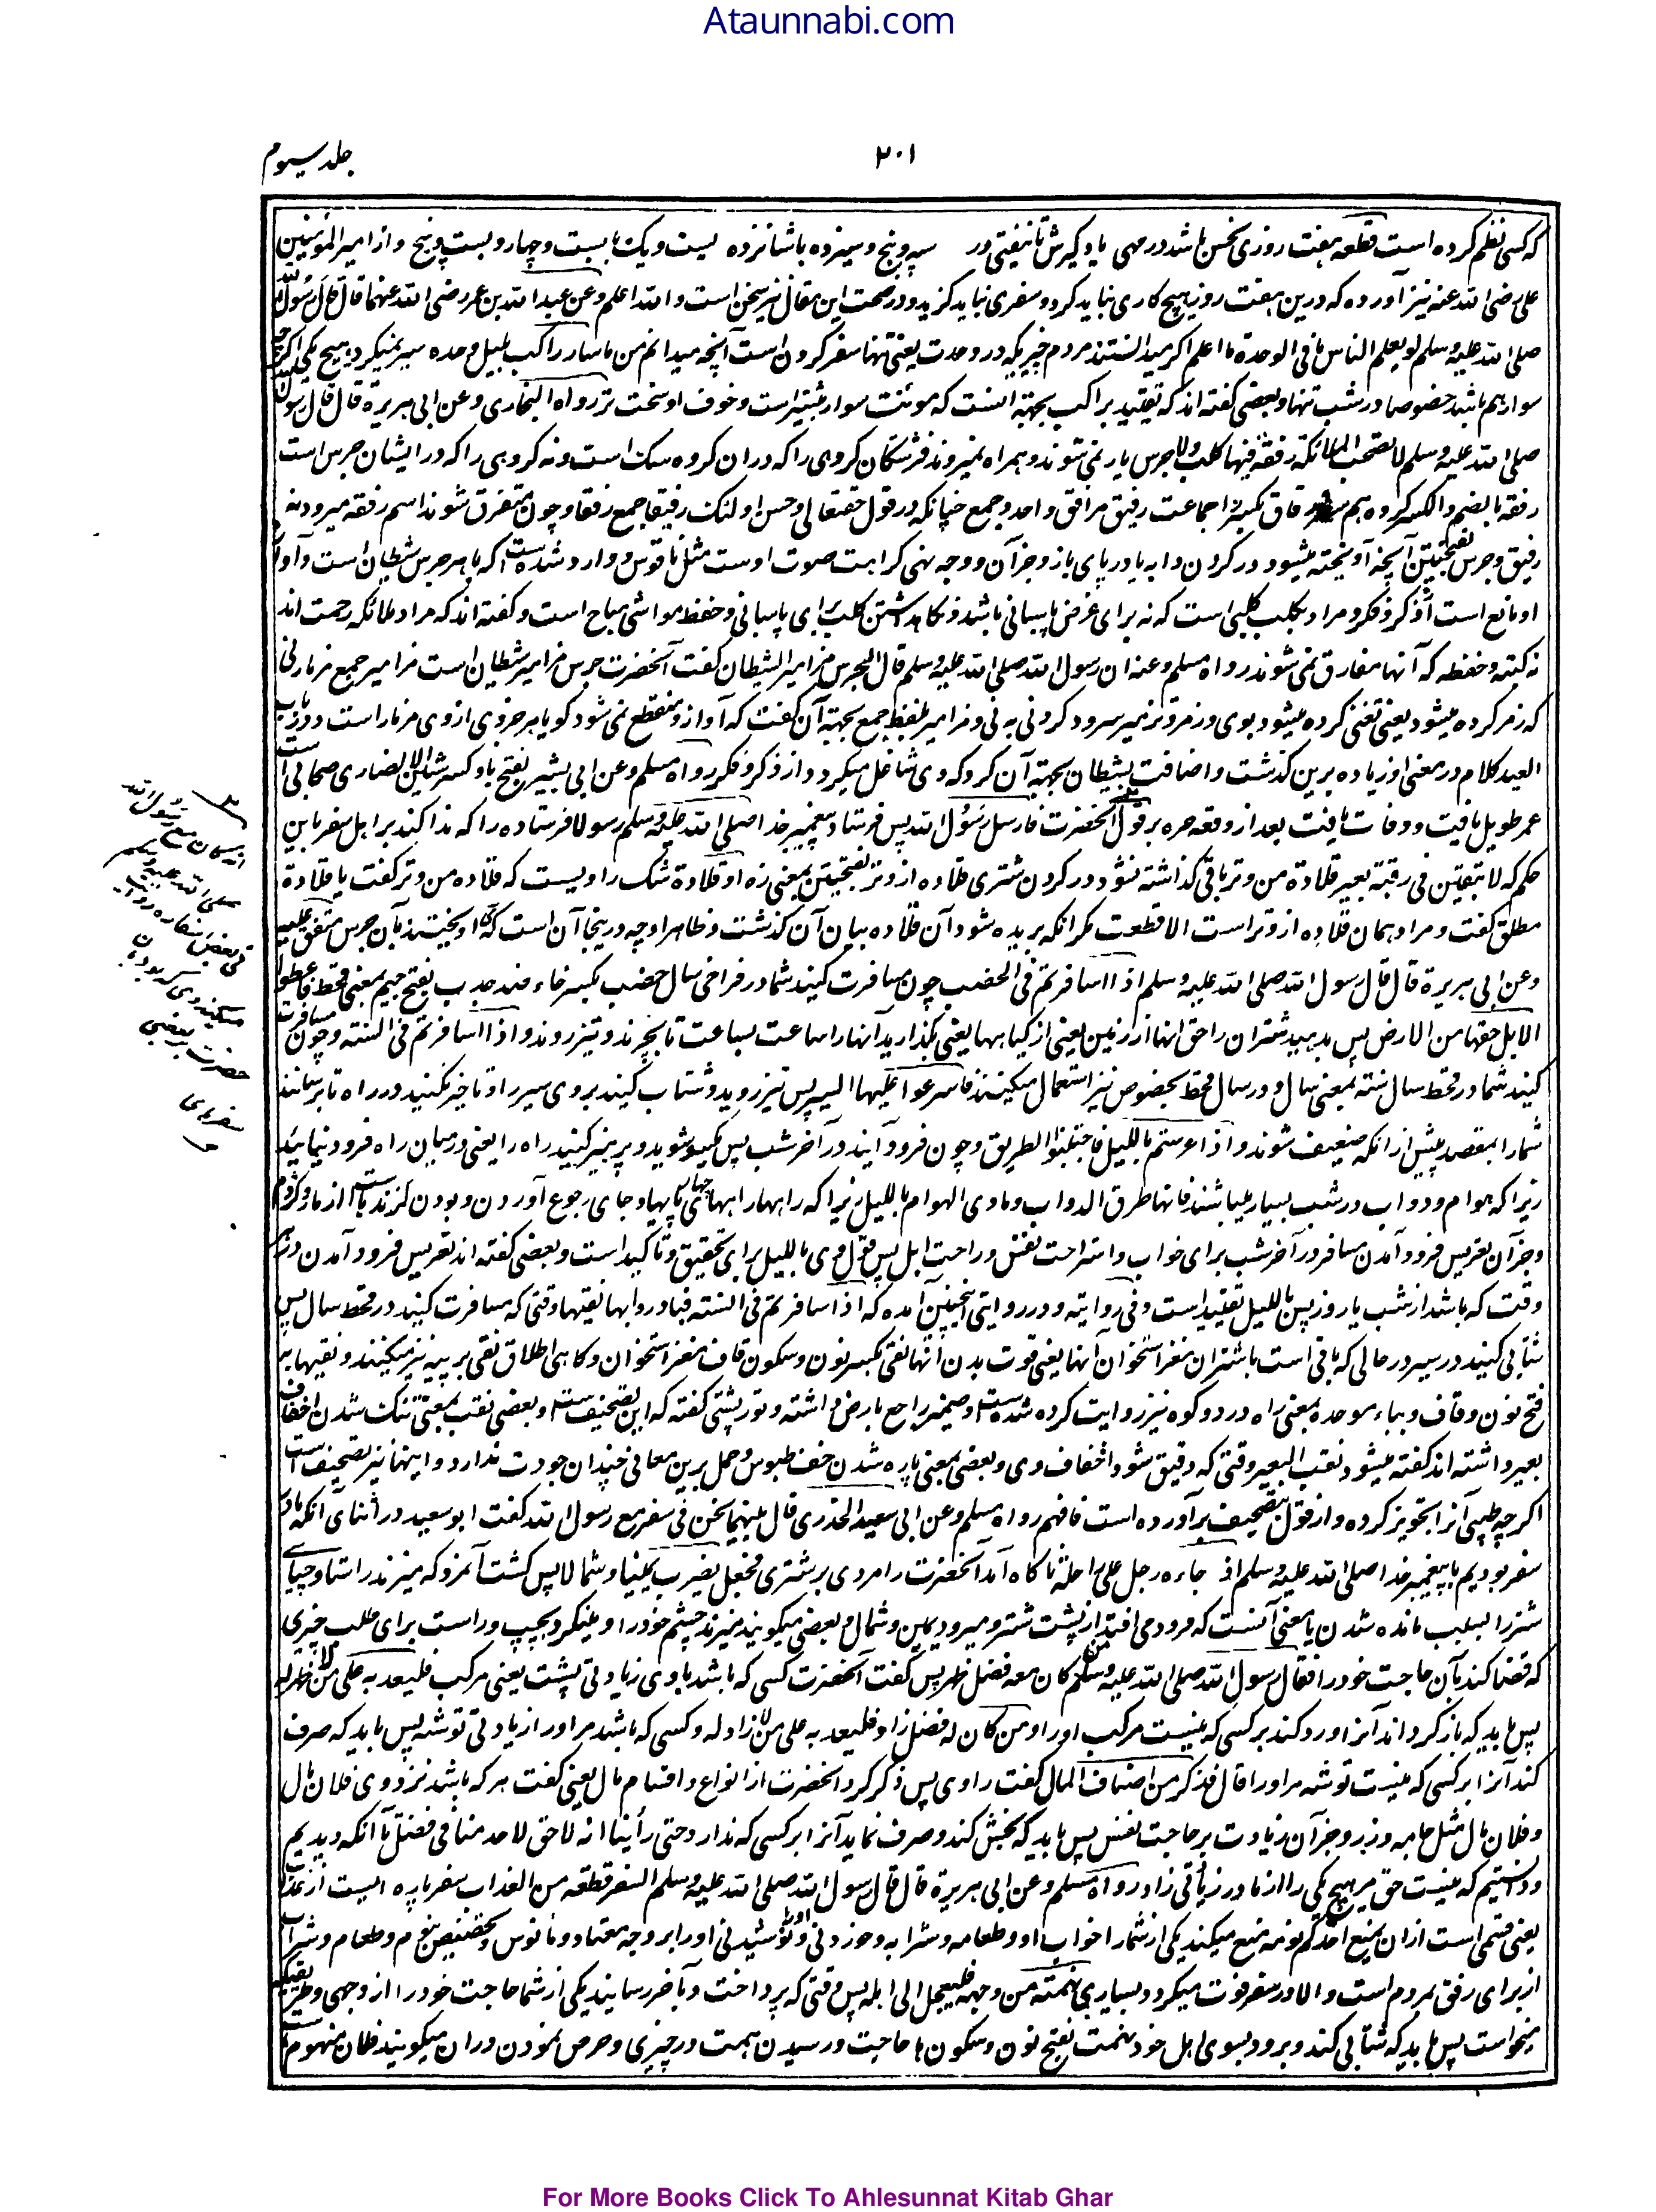 Ataunnabi.com
جلد سیوم
۲۰۱
که کسی نظم کرده است قطعه هفت روزی نحس باشد در مهی یاد گیرش تا نیفتی در سه و پنج و سیزده با شانزده بیست و یک با بیست و چهار و بیست و پنج و از امیرالمؤمنین
علی رضی الله عنه نیز آورده که درین هفت روز هیچ کاری نباید کرد و سفری نباید گزید و در صحت این مقال نیز سخن است والله اعلم وعن عبد الله بن عمر رضی الله عنهما قال قال رسول الله
صلی الله علیه وسلم لو یعلم الناس ما فی الوحدة ما اعلم اگر میدانستند مردم چیزیکه در وحدت یعنی تنها سفر کردن است آنچه میدانم من ما سار راکب بلیل وحده سیر نمیکرد هیچ یکی اگرچه
سوار هم باشد خصوصا در شب تنها و بعضی گفته اند که تقیید براکب بجهة آنست که مونت سوار بیشتر است و خوف او سخت تر رواه البخاری وعن ابی هریرة قال قال رسول الله
صلی الله علیه وسلم لا تصحب الملائکة رفقة فیها کلب ولا جرس یار نمی شوند و همراه نمیروند فرشتگان گروهی را که در ان گروه سگ است و نه گروهی را که در ایشان جرس است
رفقه بالضم والکسر گروه هم سفر رفاق بکسر را جماعت رفیق مرافق واحد و جمع چنانکه در قول حقتعالی وحسن اولئک رفیقا جمع رفقا و چون متفرق شوند اسم رفقه میرود نه
رفیق و جرس بفتحتین آنچه آویخته میشود در گردن دابه یا در پای باز و جز آن و وجه نهی کراهت صوت اوست مثل ناقوس و وارد شده است که با هر جرس شیطان است و آواز
او مانع است از ذکر و فکر و مراد بکلب کلبی است که نه برای غرض پاسبانی باشد و نگاهداشتن کلب برای پاسبانی و حفظ مواشی مباح است و گفته اند که مراد ملائکه رحمت اند
نه کتبه و حفظه که آنها مفارق نمی شوند رواه مسلم وعنه ان رسول الله صلی الله علیه وسلم قال الجرس مزامیر الشیطان گفت آنحضرت جرس مزامیر شیطان است مزامیر جمع مزمار نی
که زمر کرده میشود یعنی تغنی کرده میشود بوی و زمر و تزمیر سرود کردنی به نی و مزامیر بلفظ جمع بجهة آن گفت که آواز و منقطع نمی شود گویا هر جزوی از وی مزمار است و در باب
العید کلام در معنی او زیاده برین گذشت و اضافت بشیطان بجهة آن کرد که وی شاغل میگردد از ذکر و فکر رواه مسلم وعن ابی بشیر بفتح با و کسر شین الانصاری صحابی است
عمر طویل یافت و وفات یافت بعد از وقعه حره بر قول آنحضرت فارسل رسول الله پس فرستاد پیغمبر خدا صلی الله علیه وسلم رسولا فرستاده را که ندا کند بر اهل سفر باین
حکم که لا تبقین فی رقبة بعیر قلادة من وتر باقی گذاشته نشود در گردن شتری قلاده از وتر بفتحتین بمعنی زه او قلادة شک راویست که قلاده من وتر گفت یا قلادة
مطلق گفت و مراد همان قلاده از وتر است الا قطعت مگر آنکه بریده شود آن قلاده بیان آن گذشت و ظاهر اوجه درینجا آن است که می آویختند بآن جرس متفق علیه
وعن ابی هریرة قال قال رسول الله صلی الله علیه وسلم اذا سافرتم فی الخصب چون مسافرت کنید شما در فراخی سال خصب بکسر خاء ضد جدب بفتح جیم بمعنی قحط فاعطوا
الابل حقها من الارض پس بدهید شتران را حق انها از زمین یعنی از گیاهها یعنی بگذارید آنها را ساعت بساعت تا بچرند و تیز روند و اذا سافرتم فی السنة و چون مسافرت
کنید شما در قحط سال سنة بمعنی سال و در سال قحط بخصوص نیز استعمال میکنند فاسرعوا علیها السیر پس تیز روید و شتاب کنید بر وی سیر را و تاخیر نکنید در راه تا برسانند
شما را بمقصد پیش از آنکه ضعیف شوند و اذا عرستم باللیل فاجتنبوا الطریق و چون فرود آیند در آخر شب پس یکسو شوید و پرهیز کنید راه را یعنی در میان راه فرود نیایید
زیرا که هوام و دواب در شب بسیار میباشند فانها طرق الدواب و ماوی الهوام باللیل زیرا که راهها راههای چارپایها و جای رجوع آوردن و بودن گزنده است از مار و کژدم
و جز آن تعریس فرود آمدن مسافر در آخر شب برای خواب و استراحت نفس و راحت ابل پس قول وی باللیل برای تحقیق و تاکید است و بعضی گفته اند تعریس فرود آمدن در هر
وقت که باشد از شب یا روز پس باللیل تقیید است و فی روایة و در روایتی اینچنین آمده که اذا سافرتم فی السنة فبادروا بها نقیها وقتی که مسافرت کنید در قحط سال پس
شتابی کنید در سیر در حالی که باقی است با شتران مغز استخوان آنها یعنی قوت بدن آنها نقی بکسر نون و سکون قاف مغز استخوان و گاهی اطلاق نقی بر پیه نیز میکنند و نقبها به
فتح نون و قاف و بباء موحده بمعنی راه در دو کوه نیز روایت کرده شده است و ضمیر راجع بارض داشته و تورپشتی گفته که این تصحیف است و بعضی نقب بمعنی تنک شدن اخفاف
بعیر داشته اند گفته میشود نقب البعیر وقتی که رقیق شود اخفاف وی و بعضی بمعنی پاره شدن خف ملبوس و حمل برین معانی چندان جودت ندارد و اینها نیز تصحیف است
اگرچه طیبی آنرا تجویز کرده و از قول بتصحیف برآورده است فافهم رواه مسلم وعن ابی سعید الخدری قال بینما نحن فی سفر مع رسول الله گفت ابو سعید در اثنای آنکه ما در
سفر بودیم با پیغمبر خدا صلی الله علیه وسلم اذ جاءه رجل علی راحلة ناگاه آمد آنحضرت را مردی بر شتری فجعل یضرب یمینا و شمالا پس گشت آنمرد که میزند راستا و چپای
شتر را بسبب مانده شدن یا معنی آنست که فرود می افتد از پشت شتر و میرود یمین و شمال و بعضی میگویند میزند چشم خود را و مینگرد بچپ و راست برای طلب چیزی
که قضا کند بآن حاجت خود را فقال رسول الله صلی الله علیه وسلم من کان معه فضل ظهر پس گفت آنحضرت کسی که باشد با وی زیادتی پشت یعنی مرکب فلیعد به علی من لا ظهر له
پس باید که باز گرداند آنرا و رد کند بر کسی که نیست مرکب او را و من کان له فضل زاد فلیعد به علی من لا زاد له و کسی که باشد مر او را زیادتی توشه پس باید که صرف
کند آنرا بر کسی که نیست توشه مر او را قال فذکر من اصناف المال گفت راوی پس ذکر کرد آنحضرت از انواع و اقسام مال یعنی گفت هر که باشد نزد وی فلان مال
و فلان مال مثل جامه و زر و جز آن زیادت بر حاجت نفس پس باید که بخشش کند و صرف نماید آنرا بر کسی که ندارد حتی رأینا انه لا حق لاحد منا فی فضل تا آنکه دیدیم
و دانستیم که نیست حق مر هیچ یکی را از ما در زیادتی زاد رواه مسلم وعن ابی هریرة قال قال رسول الله صلی الله علیه وسلم السفر قطعة من العذاب سفر پاره ایست از عذاب
یعنی قسمی است از ان یمنع احدکم نومه منع میکند یکی از شما را خواب او و طعامه و شرابه و خوردنی او را و نوشیدنی او را بر وجه معتاد و مانوس و تخصیص نوم و طعام و شراب
از برای رفق بمردم است و الا در سفر فوت میگردد بسیاری نهمته من وجهه فلیعجل الی اهله پس وقتی که پرداخت و باخر رسانید یکی از شما حاجت خود را از وجهی و طریقیکه
میخواست پس باید که شتابی کند و برود بسوی اهل خود نهمت بفتح نون و سکون ها حاجت و رسیدن همت در چیزی و حرص نمودن در ان میگویند فلان منهوم است
For More Books Click To Ahlesunnat Kitab Ghar